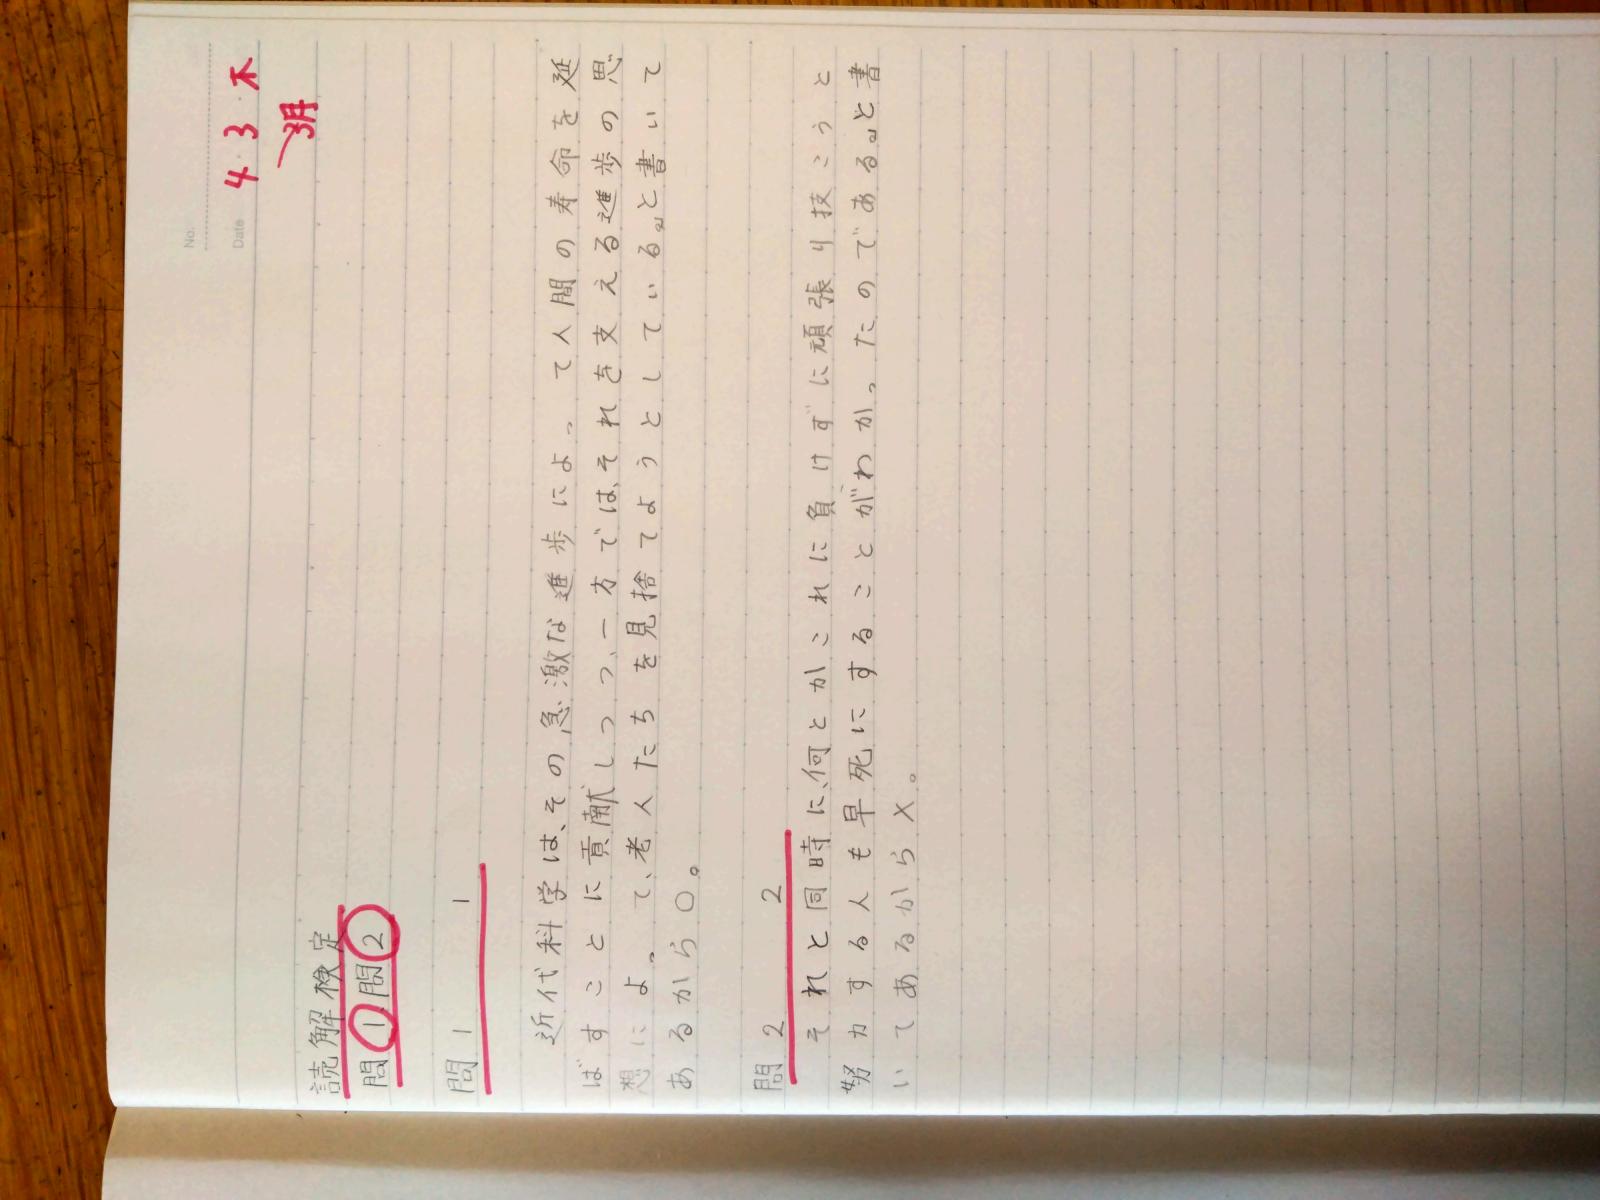 No.
Date 4・3・木
3月
読解検定
問1問2
問1 1
近代科学は、その急激な進歩によって人間の寿命を延
ばすことに貢献しつつ、一方では、それを支える進歩の思
想によって、老人たちを見捨てようとしている。』と書いて
あるから○。
問2 2
それと同時に、何とかこれに負けずに頑張り技こうと
努力する人も早死にすることがわかったのである。』と書
いてあるから×。